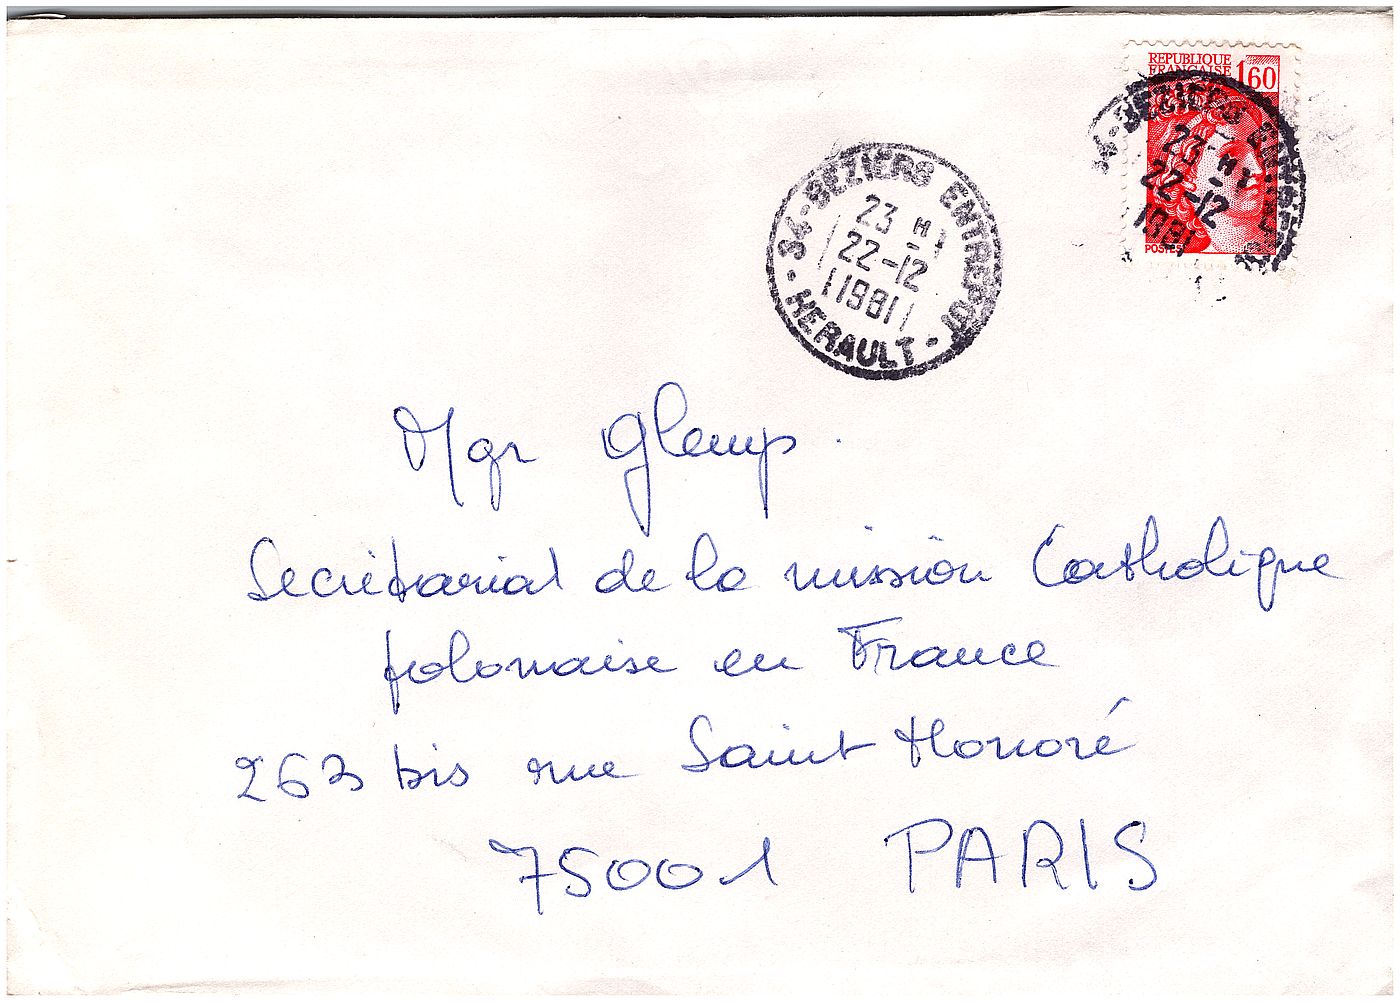 REPUBLIQUE
FRANÇAISE
1,60
POSTES
34-BEZIERS ENTREPOT
23 H
22-12
1981
34-BEZIERS ENTREPOT
23 H
22-12
1981
HERAULT
Mgr Glemp
Secrétariat de la mission Catholique
polonaise en France
263 bis rue Saint Honoré
75001 PARIS